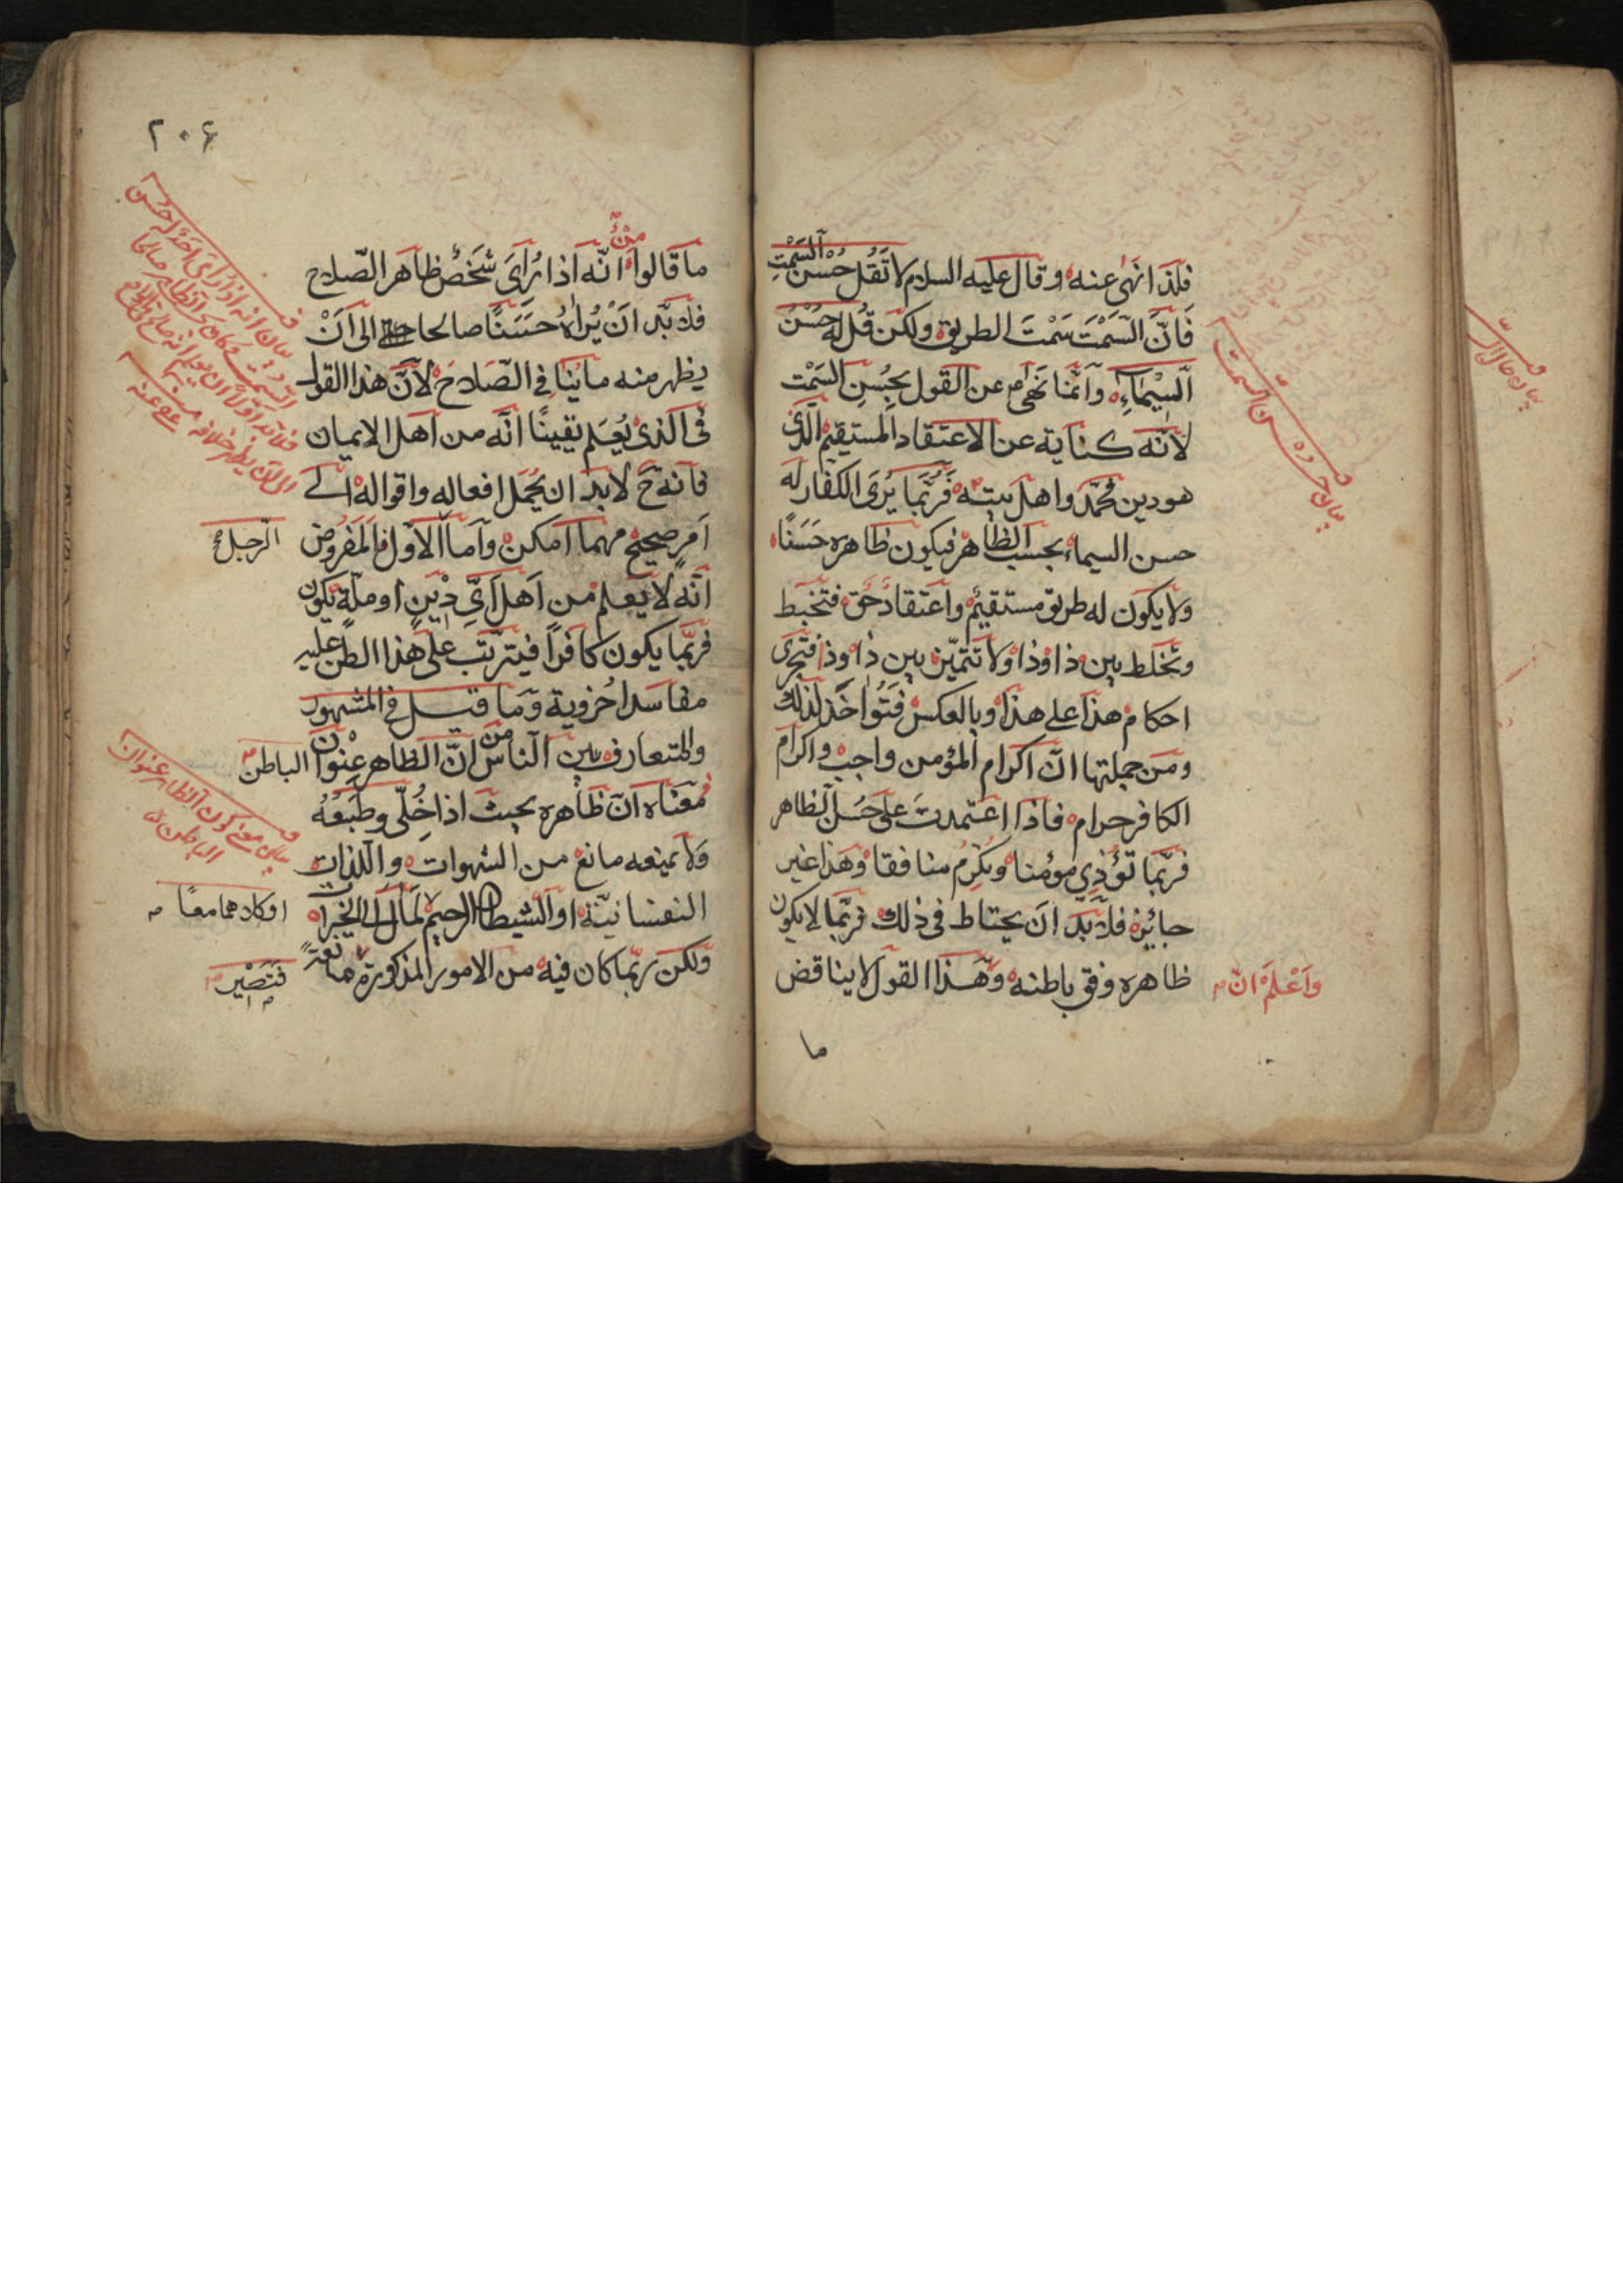 فلذا نهى عنه وقال عليه السلام لا تقل حُسْن السَّمْتِ
فَانَّ السَّمْتَ سَمْتَ الطريق ولكن قُل له حُسْنُ
السِّيْمَاءِ وانّما نهى عن القول بحُسْنِ السَّمْت
لانّه كناية عن الاعتقاد المستقيم الّذى
هو دين محمّد واهل بيته فرُبّما يُرَى الكفار له
حسن السيماء بحسب الظاهر فيكون ظاهره حَسَنًا
ولا يكون له طريق مستقيم واعتقاد حَق فتخبط
وتخلط بين ذا وذا ولا تتميّز بين ذا وذا فتجرى
احكام هذا على هذا وبالعكس فتُواخَذ لذلك
ومن جملتها انّ اكرام المؤمن واجب واكرام
الكافر حرام فاذا اعتمدت على حُسن الظاهر
فربّما تؤذى مؤمنا وتُكْرِمُ منافقا وهذا غير
جائز فلا بُدّ ان يحتاط فى ذلك فربّما لا يكون
ظاهره وفق باطنه وهذا القول لا يناقض
ما
بيان حرمة حسن السمت
وَاعْلَمْ انّ
ما قالوا مِنْ انّه اذا رُاى شخص ظاهر الصّلاح
فلا بُدّ انْ يُراهُ حَسَنًا صالحا الى اَنْ
يظهر منه ما ينافى الصّلاح لانّ هذا القول
فى الّذى يُعلم يقينًا انّه من اهل الايمان
فانه ح لا بد ان يحمل افعاله واقواله الى
اَمرٍ صحيح مهما امكن وامّا الاوّل فالمَفرُوض
انّه لا يَعلم من اَهل اَىِّ دِيْنٍ او ملّة يكون
الرجل
فربّما يكون كافرًا فيترتّب على هذا الظن عليه
مفاسد اخروية وما قيل فى المشهور
والمتعارف بين الناس من انّ الظاهر عنوان الباطن
فمعناه انّ ظاهره بحيث اذا خُلّى وطبعُهُ
ولا يمنعه مانع من الشهوات واللذات
النفسانيّة او الشيطان الرجيم لمال الى الخيرات
او كلاهما معًا
ولكن ربّما كان فيه من الامور المذكورة مانعة
فَتَصْير
٢٠٦
بيان انه اذا راى احدا حسن
بيان معنى كون الظاهر عنوان
الباطن